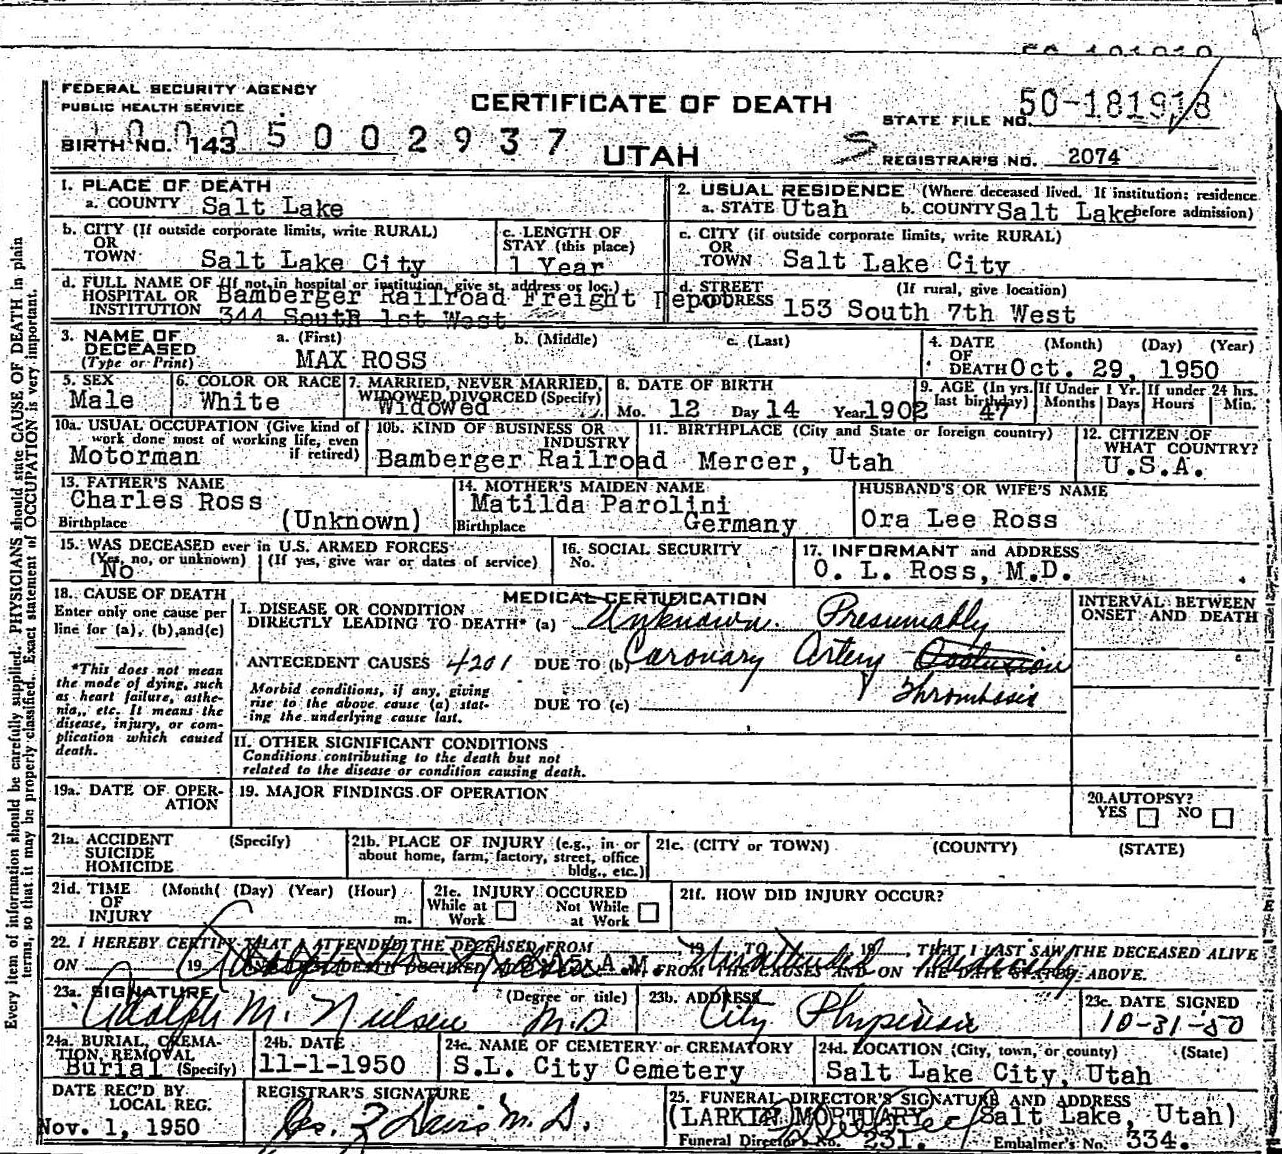 FEDERAL SECURITY AGENCY
PUBLIC HEALTH SERVICE
CERTIFICATE OF DEATH
STATE FILE NO. 50-181918
BIRTH NO. 143 5002937
UTAH
REGISTRAR'S NO. 2074
1. PLACE OF DEATH
a. COUNTY Salt Lake
2. USUAL RESIDENCE (Where deceased lived. If institution: residence before admission)
a. STATE Utah b. COUNTY Salt Lake
b. CITY (If outside corporate limits, write RURAL)
OR
TOWN Salt Lake City
c. LENGTH OF
STAY (this place)
1 Year
c. CITY (if outside corporate limits, write RURAL)
OR
TOWN Salt Lake City
d. FULL NAME OF (If not in hospital or institution, give st. address or loc.)
HOSPITAL OR
INSTITUTION
Bamberger Railroad Freight Depot
344 South 1st West
d. STREET
ADDRESS
(If rural, give location)
153 South 7th West
3. NAME OF
DECEASED
(Type or Print)
a. (First) b. (Middle) c. (Last)
MAX ROSS
4. DATE
OF
DEATH
(Month) (Day) (Year)
Oct. 29, 1950
5. SEX
Male
6. COLOR OR RACE
White
7. MARRIED, NEVER MARRIED,
WIDOWED, DIVORCED (Specify)
Widowed
8. DATE OF BIRTH
Mo. 12 Day 14 Year 1902
9. AGE (In yrs.
last birthday)
47
If Under 1 Yr.
Months Days
If under 24 hrs.
Hours Min.
10a. USUAL OCCUPATION (Give kind of
work done most of working life, even
if retired)
Motorman
10b. KIND OF BUSINESS OR
INDUSTRY
Bamberger Railroad
11. BIRTHPLACE (City and State or foreign country)
Mercer, Utah
12. CITIZEN OF
WHAT COUNTRY?
U.S.A.
13. FATHER'S NAME
Charles Ross
Birthplace (Unknown)
14. MOTHER'S MAIDEN NAME
Matilda Parolini
Birthplace Germany
HUSBAND'S OR WIFE'S NAME
Ora Lee Ross
15. WAS DECEASED ever in U.S. ARMED FORCES
(Yes, no, or unknown) (If yes, give war or dates of service)
No
16. SOCIAL SECURITY
No.
17. INFORMANT and ADDRESS
O. L. Ross, M.D.
18. CAUSE OF DEATH
Enter only one cause per
line for (a), (b), and (c)
*This does not mean
the mode of dying, such
as heart failure, asthe-
nia, etc. It means the
disease, injury, or com-
plication which caused
death.
MEDICAL CERTIFICATION
I. DISEASE OR CONDITION
DIRECTLY LEADING TO DEATH* (a) Unknown. Presumably
ANTECEDENT CAUSES 4201 DUE TO (b) Coronary Artery Occlusion
Thrombosis
Morbid conditions, if any, giving
rise to the above cause (a) stat-
ing the underlying cause last.
DUE TO (c)
INTERVAL BETWEEN
ONSET AND DEATH
II. OTHER SIGNIFICANT CONDITIONS
Conditions contributing to the death but not
related to the disease or condition causing death.
19a. DATE OF OPER-
ATION
19. MAJOR FINDINGS OF OPERATION
20. AUTOPSY?
YES NO
21a. ACCIDENT
SUICIDE
HOMICIDE
(Specify)
21b. PLACE OF INJURY (e.g., in or
about home, farm, factory, street, office
bldg., etc.)
21c. (CITY or TOWN) (COUNTY) (STATE)
21d. TIME
OF
INJURY
(Month) (Day) (Year) (Hour)
m.
21e. INJURY OCCURED
While at
Work
Not While
at Work
21f. HOW DID INJURY OCCUR?
22. I HEREBY CERTIFY THAT I ATTENDED THE DECEASED FROM 19 TO 19 THAT I LAST SAW THE DECEASED ALIVE
ON 19 AND THAT DEATH OCCURED A.M. FROM THE CAUSES AND ON THE DATE STATED ABOVE.
23a. SIGNATURE (Degree or title)
Adolph M. Nielsen M.D
23b. ADDRESS
City Physician
23c. DATE SIGNED
10-31-50
24a. BURIAL, CREMA-
TION, REMOVAL
(Specify)
Burial
24b. DATE
11-1-1950
24c. NAME OF CEMETERY or CREMATORY
S.L. City Cemetery
24d. LOCATION (City, town, or county) (State)
Salt Lake City, Utah
DATE REC'D BY
LOCAL REG.
Nov. 1, 1950
REGISTRAR'S SIGNATURE
Davis M.D.
25. FUNERAL DIRECTOR'S SIGNATURE AND ADDRESS
(LARKIN MORTUARY Salt Lake, Utah)
Funeral Director's No. 231. Embalmer's No. 334.
Every item of information should be carefully supplied. PHYSICIANS should state CAUSE OF DEATH in plain
terms, so that it may be properly classified. Exact statement of OCCUPATION is very important.